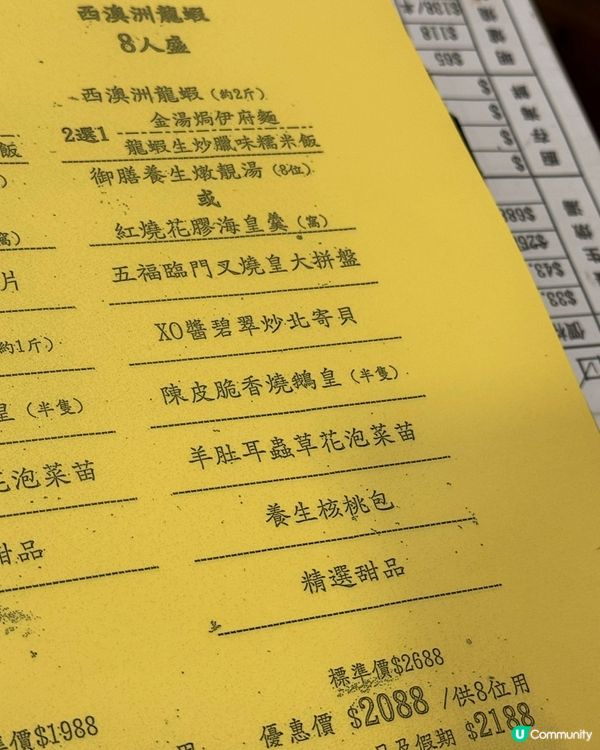 西澳洲龍蝦
8人盛
西澳洲龍蝦(約2斤)
2選1
金湯焗伊府麵
龍蝦生炒臘味糯米飯
御膳養生燉靚湯(8位)
或
紅燒花膠海皇羹(窩)
五福臨門叉燒皇大拼盤
XO醬碧翠炒北寄貝
陳皮脆香燒鵝皇(半隻)
羊肚耳蟲草花泡菜苗
養生核桃包
精選甜品
標準價$2688
優惠價 $2088 /供8位用
日及假期 $2188
飯
窩)
片
約1斤)
皇(半隻)
花泡菜苗
甜品
價$1988
用
$138/半
$118
$65
$
$
$
$
$688
$43
$33
U Community